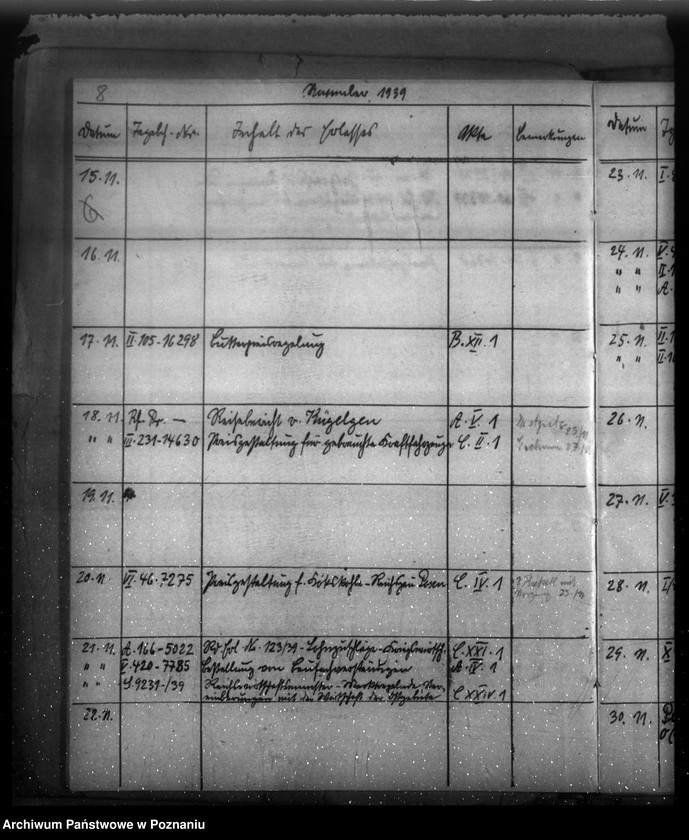 8 November 1939
Datum Tagebch.-Nr. Inhalt des Erlasses Akte Bemerkungen Datum
15.11. 23.11. I.
6
16.11. 24.11. V.
" " II.
" " A.
17.11. II.105-16298 Butterpreisregelung B.XII.1 25.11. II.
" " II.
18.11. Rf. Kr. — Reisebericht v. Kügelgen A.V.1 26.11.
" " III.231-14630 Preisgestaltung für gebrauchte Kraftfahrzeuge C.II.1
19.11. 27.11. V.
20.11. VI.46.7275 Preisgestaltung f. Kokskohle-Reichsgau Posen C.IV.1 28.11.
21.11. A.166-5022 Rd Erl. Nr. 123/39-Lohnzuschläge- C.XXI.1 29.11. X
" " V.420-7785 Bestellung von Buchsachverständigen A.IV.1
" " S.9231-/39 Reichswirtschaftsminister-Marktregelnde Ver-
einbarungen mit der Wirtschaft der Ostgebiete C XXIV.1
22.11. 30.11.
Archiwum Państwowe w Poznaniu